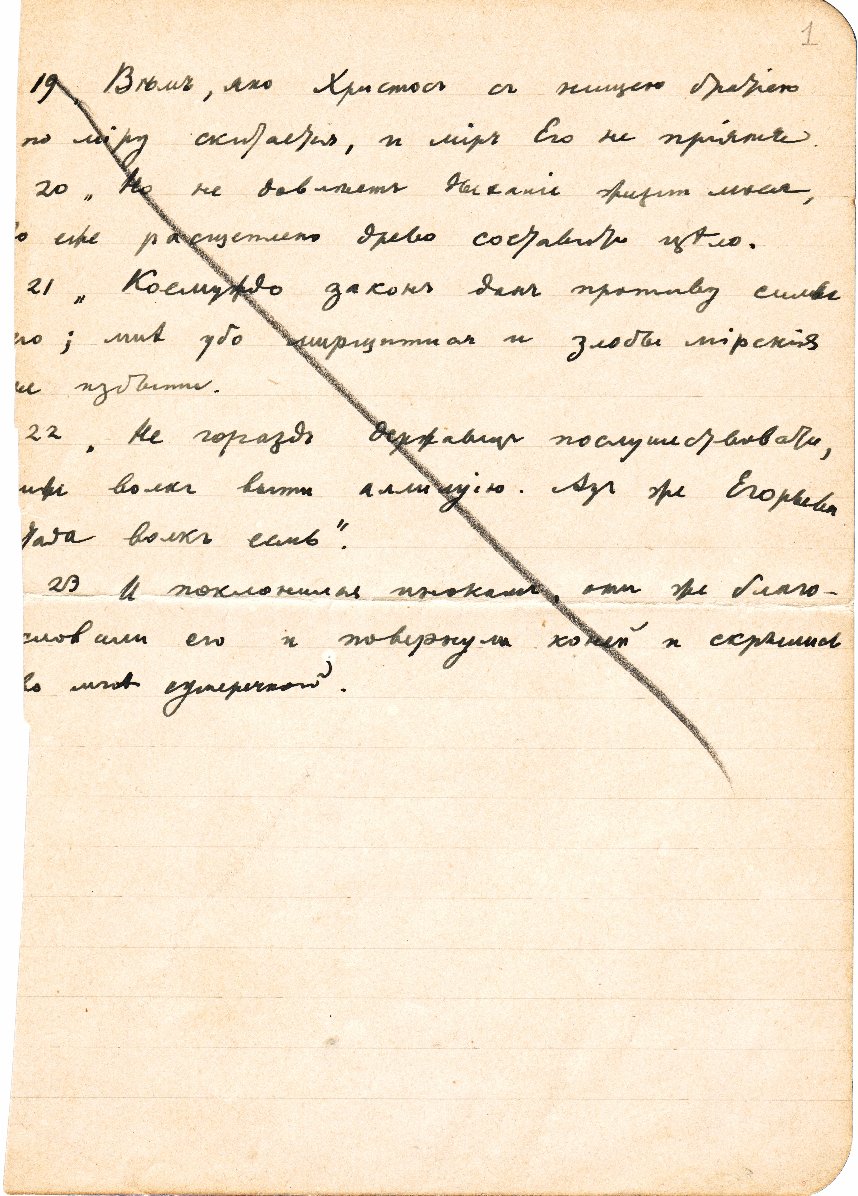 1
19 „ Вѣмъ, яко Христосъ съ нищею братіею
по міру скитается, и міръ Его не пріятъ.
20 „ Но не довлѣетъ дыханіе
еже расщеплено древо составить цѣло.
21 „ Коемуждо законъ данъ противу силы
его; мнѣ убо мирщитися и злобы мірскія
не избыти.
22 „ Не гораздъ державцѣ послушествовати,
ниже волкъ выти аллилуію. Азъ же Егорьева
стада волкъ есмь“.
23 И поклонился инокамъ, они же благо-
словили его и повернули коней и скрылись
во мглѣ сумеречной.